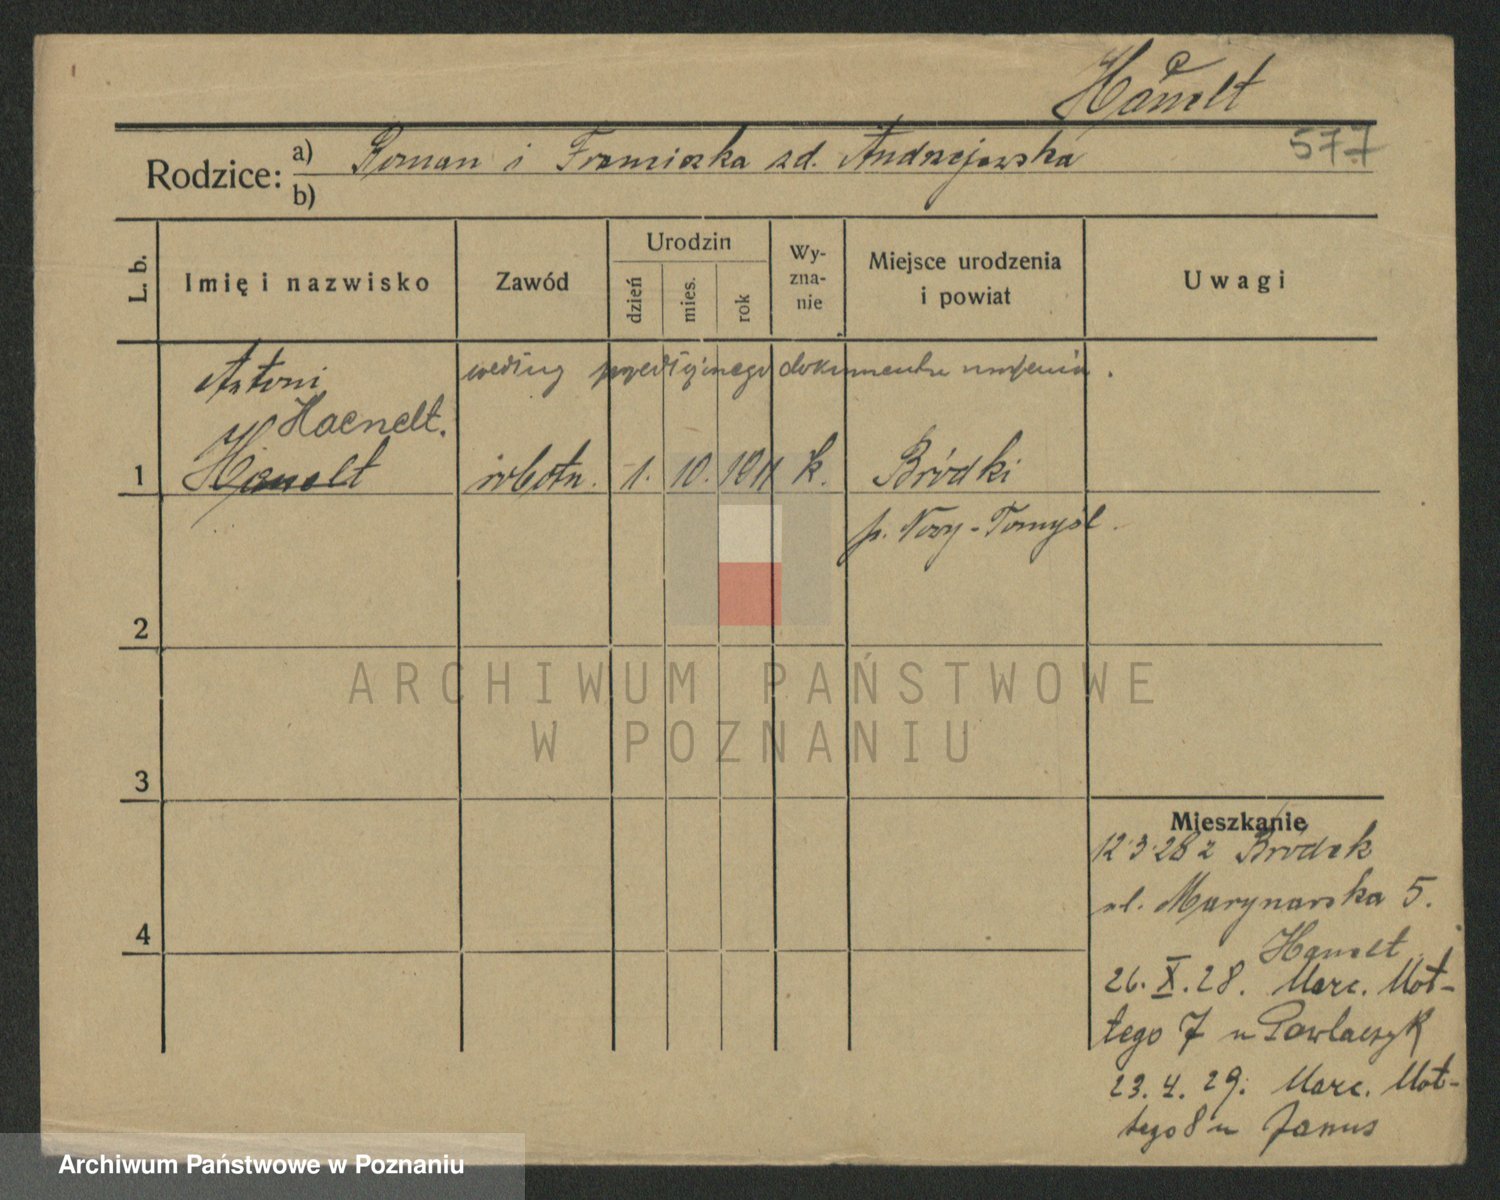 Hanelt
577
Rodzice: a) Roman i Franciszka zd. Andrzejewska
b)
L. b.
Imię i nazwisko
Zawód
Urodzin
dzień
mies.
rok
Wy-
zna-
nie
Miejsce urodzenia
i powiat
Uwagi
Antoni
według dokumentu
Haenelt.
1 Hanelt robotn. 1. 10. 1911 k. Bródki
p. Nowy-Tomyśl.
2
3
4
Mieszkanie
12.3.28 z Bródek
ul. Marynarska 5.
Hanelt
26.X.28. Marc. Mot-
tego 7 u Pawlaczyk
23.4.29. Marc. Mot-
tego 8 u Janus
ARCHIWUM PAŃSTWOWE
W POZNANIU
Archiwum Państwowe w Poznaniu